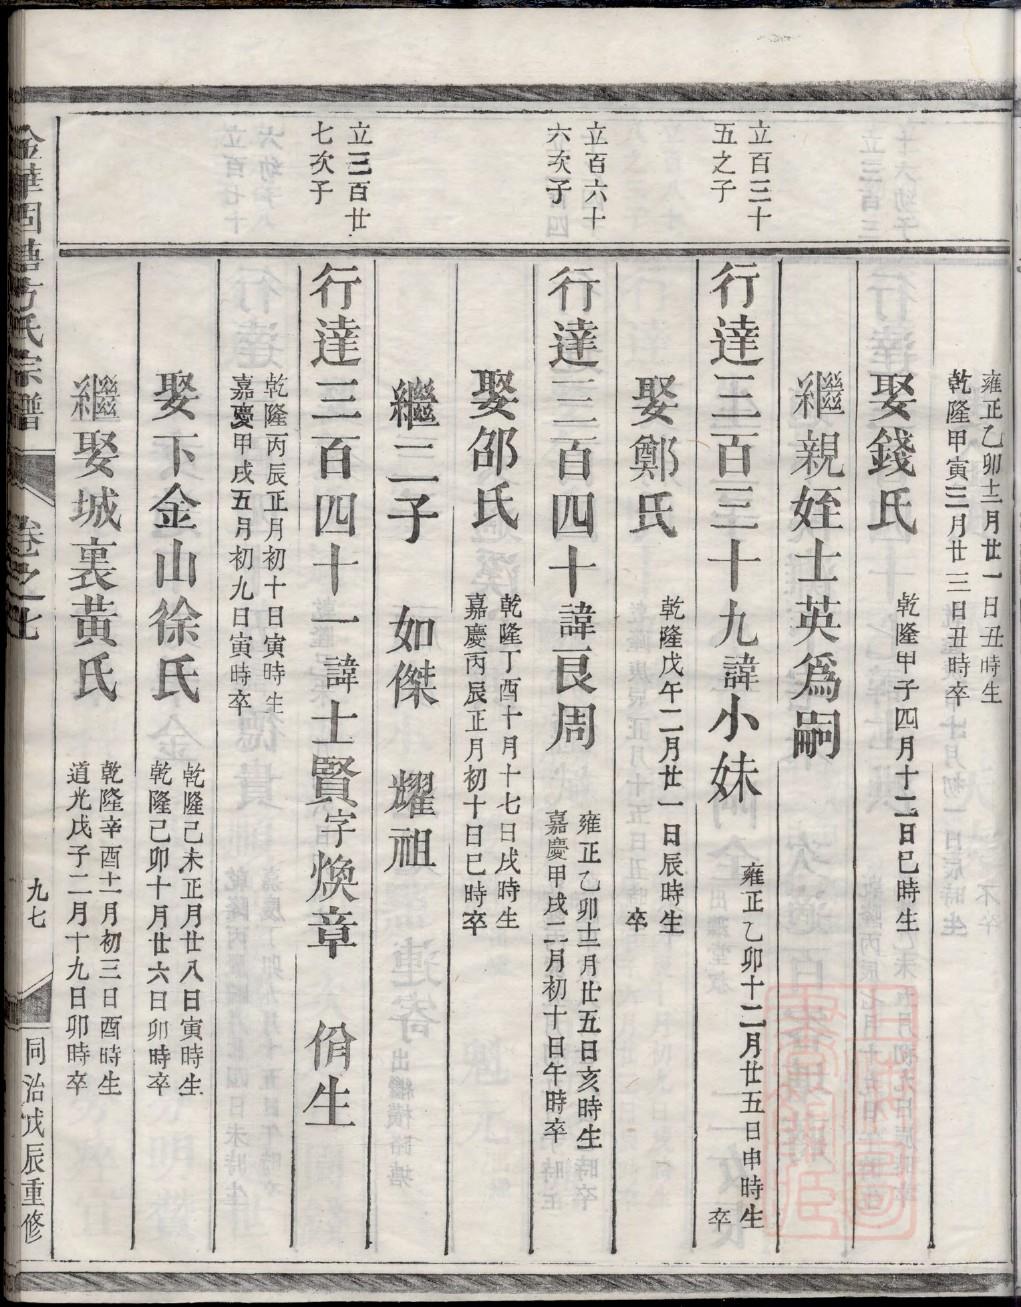 雍正乙卯十二月廿一日丑時生
乾隆甲寅三月廿三日丑時卒
娶錢氏
乾隆甲子四月十二日巳時生
繼親姪士英爲嗣
立百三十
五之子
行達三百三十九諱小妹
雍正乙卯十二月廿五日申時生
卒
娶鄭氏
乾隆戊午二月廿一日辰時生
卒
立百六十
六次子
行達三百四十諱艮周
雍正乙卯十二月廿五日亥時生
嘉慶甲戌二月初十日午時卒
娶邵氏
乾隆丁酉十月十七日戌時生
嘉慶丙辰正月初十日巳時卒
繼二子 如傑 耀祖
立三百廿
七次子
行達三百四十一諱士賢字煥章 佾生
乾隆丙辰正月初十日寅時生
嘉慶甲戌五月初九日寅時卒
娶下金山徐氏
乾隆己未正月廿八日寅時生
乾隆己卯十月廿六日卯時卒
繼娶城裏黃氏
乾隆辛酉十一月初三日酉時生
道光戊子二月十九日卯時卒
方氏宗譜
卷之七
九七
同治戊辰重修